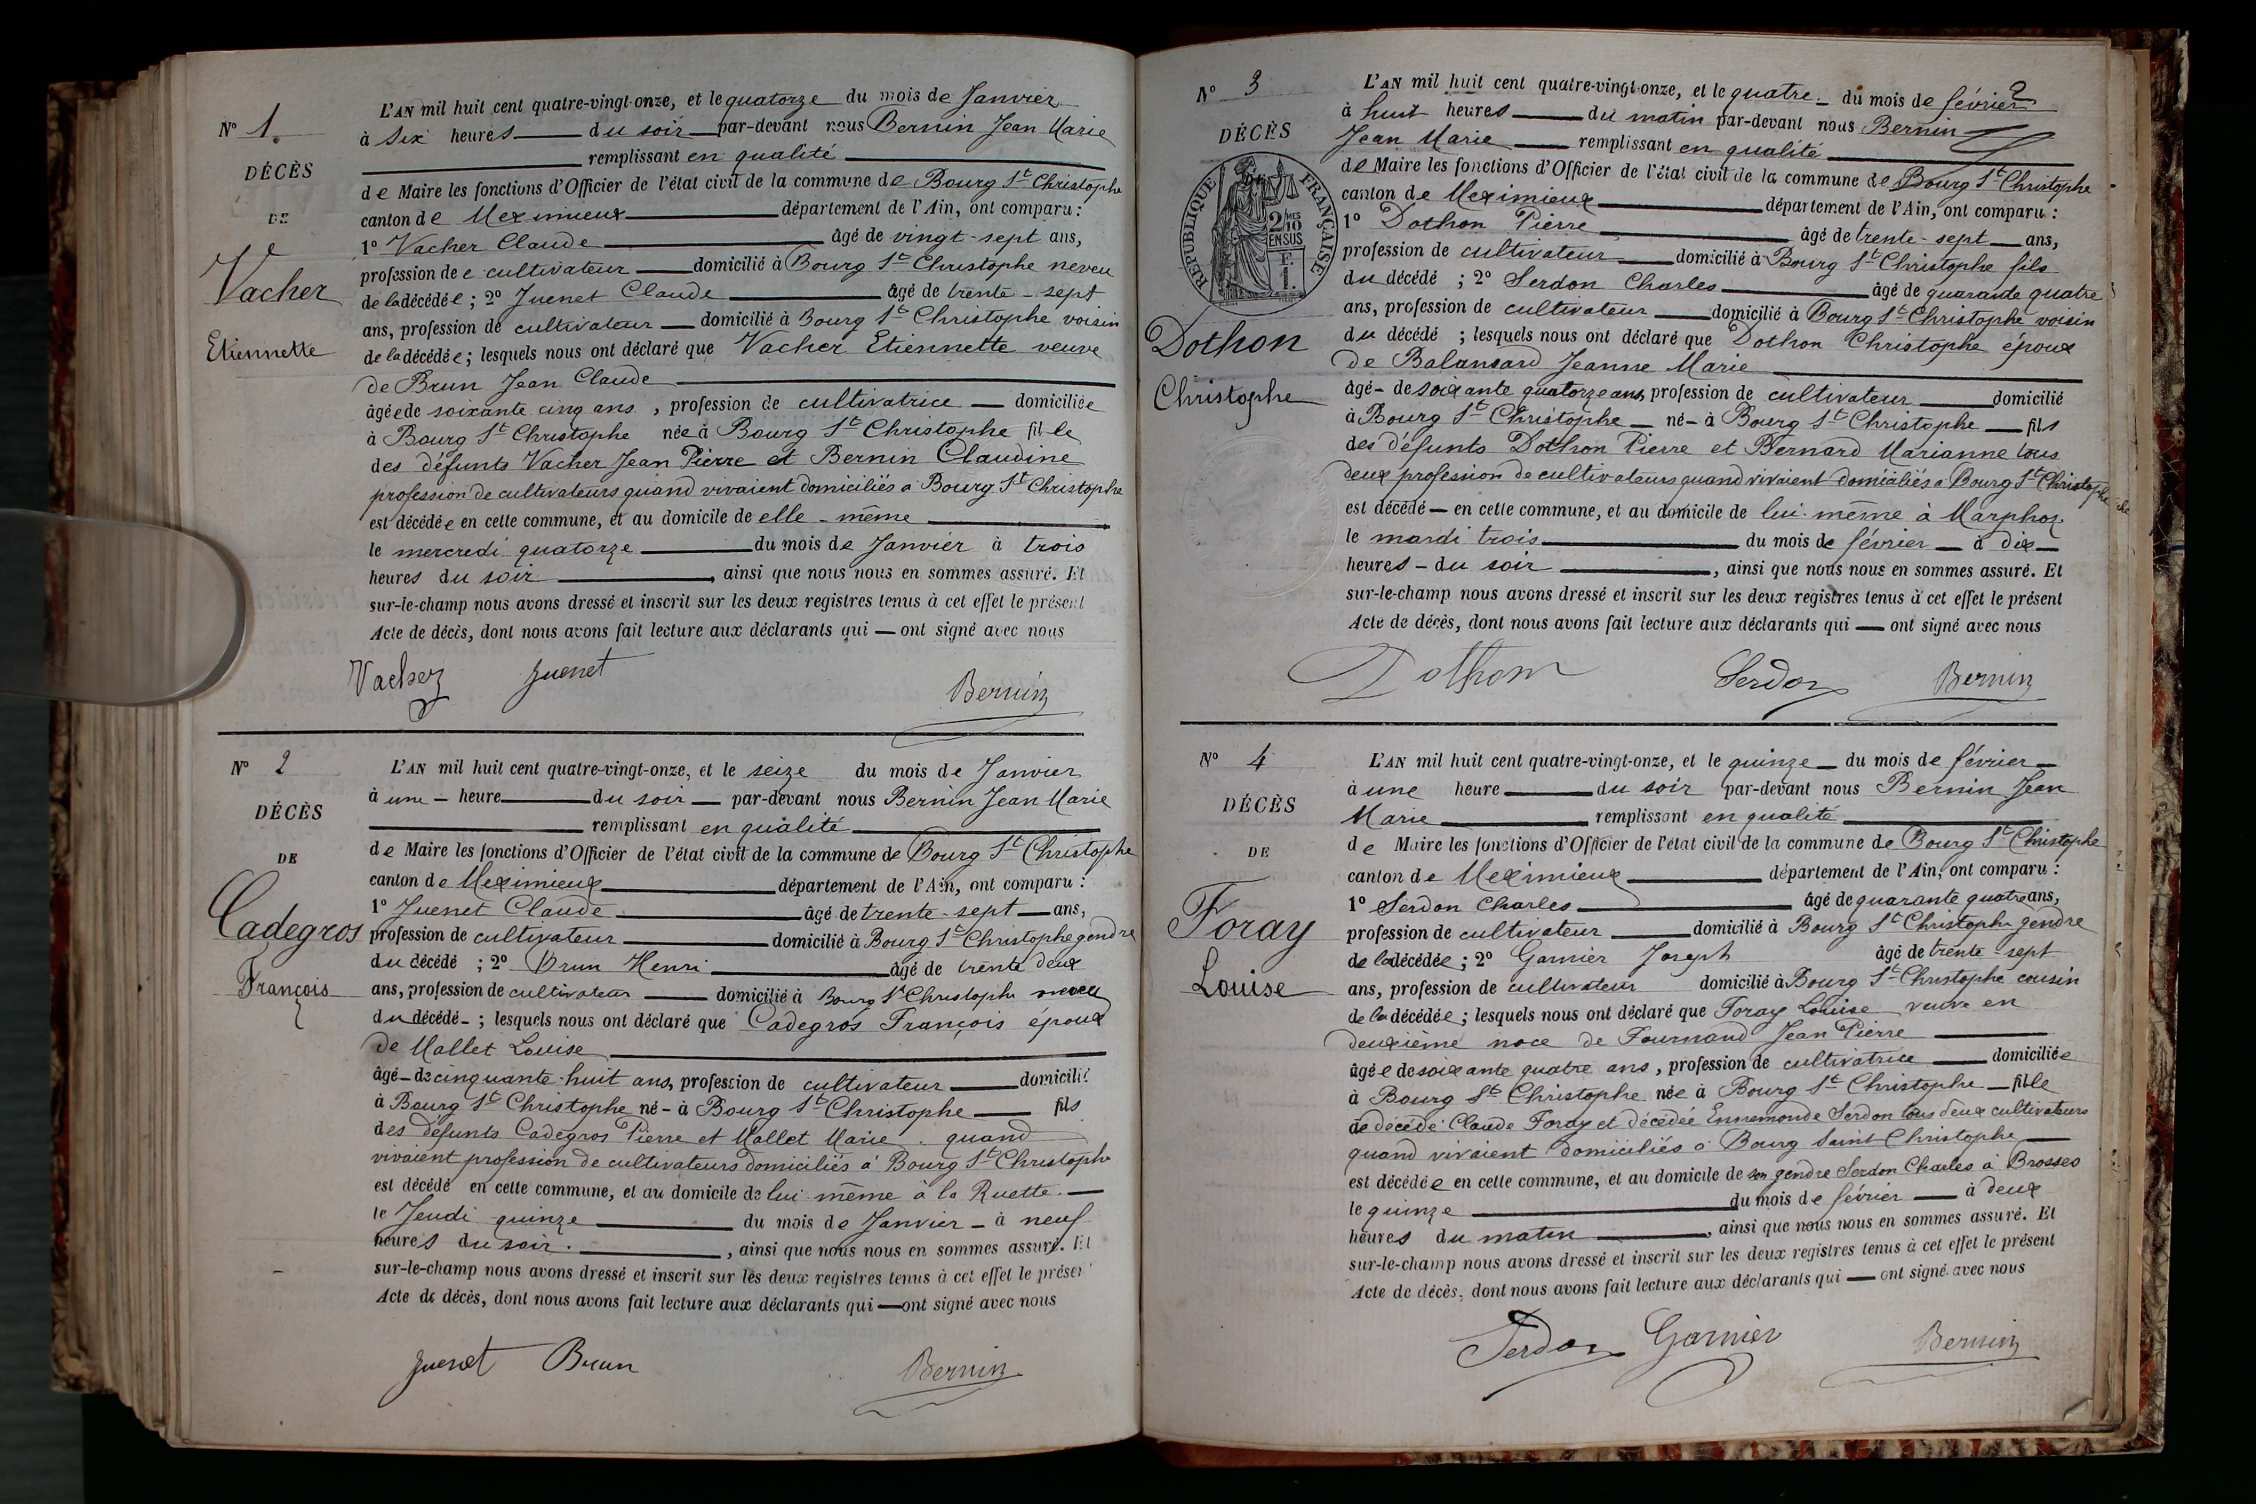 N° 1.
DÉCÈS
DE
Vacher
Etiennette
L'AN mil huit cent quatre-vingt-onze, et le quatorze du mois de Janvier
à six heures du soir par-devant nous Bernin Jean Marie
remplissant en qualité
de Maire les fonctions d'Officier de l'état civil de la commune de Bourg St Christophe
canton de Meximieux département de l'Ain, ont comparu :
1° Vacher Claude âgé de vingt-sept ans,
profession de cultivateur domicilié à Bourg St Christophe neveu
de la décédée ; 2° Juenet Claude âgé de trente-sept
ans, profession de cultivateur domicilié à Bourg St Christophe voisin
de la décédée ; lesquels nous ont déclaré que Vacher Etiennette veuve
de Brun Jean Claude
âgée de soixante cinq ans, profession de cultivatrice domiciliée
à Bourg St Christophe née à Bourg St Christophe fille
des défunts Vacher Jean Pierre et Bernin Claudine
profession de cultivateurs quand vivaient domiciliés à Bourg St Christophe
est décédée en cette commune, et au domicile de elle-même
le mercredi quatorze du mois de Janvier à trois
heures du soir, ainsi que nous nous en sommes assuré. Et
sur-le-champ nous avons dressé et inscrit sur les deux registres tenus à cet effet le présent
Acte de décès, dont nous avons fait lecture aux déclarants qui ont signé avec nous
Vacher Juenet Bernin
N° 2
DÉCÈS
DE
Cadegros
François
L'AN mil huit cent quatre-vingt-onze, et le seize du mois de Janvier
à une heure du soir par-devant nous Bernin Jean Marie
remplissant en qualité
de Maire les fonctions d'Officier de l'état civil de la commune de Bourg St Christophe
canton de Meximieux département de l'Ain, ont comparu :
1° Juenet Claude âgé de trente-sept ans,
profession de cultivateur domicilié à Bourg St Christophe gendre
du décédé ; 2° Brun Henri âgé de trente deux
ans, profession de cultivateur domicilié à Bourg St Christophe neveu
du décédé ; lesquels nous ont déclaré que Cadegros François époux
de Mallet Louise
âgé de cinquante-huit ans, profession de cultivateur domicilié
à Bourg St Christophe né à Bourg St Christophe fils
des défunts Cadegros Pierre et Mallet Marie quand
vivaient profession de cultivateurs domiciliés à Bourg St Christophe
est décédé en cette commune, et au domicile de lui-même à la Ruette.
le Jeudi quinze du mois de Janvier à neuf
heures du soir, ainsi que nous nous en sommes assuré. Et
sur-le-champ nous avons dressé et inscrit sur les deux registres tenus à cet effet le présent
Acte de décès, dont nous avons fait lecture aux déclarants qui ont signé avec nous
Juenet Brun Bernin
N° 3
DÉCÈS
RÉPUBLIQUE FRANÇAISE
2/10 MES
EN SUS
F.
1.
Dothon
Christophe
2
L'AN mil huit cent quatre-vingt-onze, et le quatre du mois de février
à huit heures du matin par-devant nous Bernin
Jean Marie remplissant en qualité
de Maire les fonctions d'Officier de l'état civil de la commune de Bourg St Christophe
canton de Meximieux département de l'Ain, ont comparu :
1° Dothon Pierre âgé de trente-sept ans,
profession de cultivateur domicilié à Bourg St Christophe fils
du décédé ; 2° Serdon Charles âgé de quarante quatre
ans, profession de cultivateur domicilié à Bourg St Christophe voisin
du décédé ; lesquels nous ont déclaré que Dothon Christophe époux
de Balansard Jeanne Marie
âgé de soixante quatorze ans, profession de cultivateur domicilié
à Bourg St Christophe né à Bourg St Christophe fils
des défunts Dothon Pierre et Bernard Marianne tous
deux profession de cultivateurs quand vivaient domiciliés à Bourg St Christophe
est décédé en cette commune, et au domicile de lui-même à Marphoz.
le mardi trois du mois de février à dix
heures du soir, ainsi que nous nous en sommes assuré. Et
sur-le-champ nous avons dressé et inscrit sur les deux registres tenus à cet effet le présent
Acte de décès, dont nous avons fait lecture aux déclarants qui ont signé avec nous
Dothon Serdon Bernin
N° 4
DÉCÈS
DE
Foray
Louise
L'AN mil huit cent quatre-vingt-onze, et le quinze du mois de février
à une heure du soir par-devant nous Bernin Jean
Marie remplissant en qualité
de Maire les fonctions d'Officier de l'état civil de la commune de Bourg St Christophe
canton de Meximieux département de l'Ain, ont comparu :
1° Serdon Charles âgé de quarante quatre ans,
profession de cultivateur domicilié à Bourg St Christophe gendre
de la décédée ; 2° Garnier Joseph âgé de trente-sept
ans, profession de cultivateur domicilié à Bourg St Christophe cousin
de la décédée ; lesquels nous ont déclaré que Foray Louise veuve en
deuxième noce de Fournand Jean Pierre
âgée de soixante quatre ans, profession de cultivatrice domiciliée
à Bourg St Christophe née à Bourg St Christophe fille
de décédé Claude Foray et décédée Ennemonde Serdon tous deux cultivateurs
quand vivaient domiciliés à Bourg Saint Christophe
est décédée en cette commune, et au domicile de son gendre Serdon Charles à Brosses
le quinze du mois de février à deux
heures du matin, ainsi que nous nous en sommes assuré. Et
sur-le-champ nous avons dressé et inscrit sur les deux registres tenus à cet effet le présent
Acte de décès, dont nous avons fait lecture aux déclarants qui ont signé avec nous
Serdon Garnier Bernin